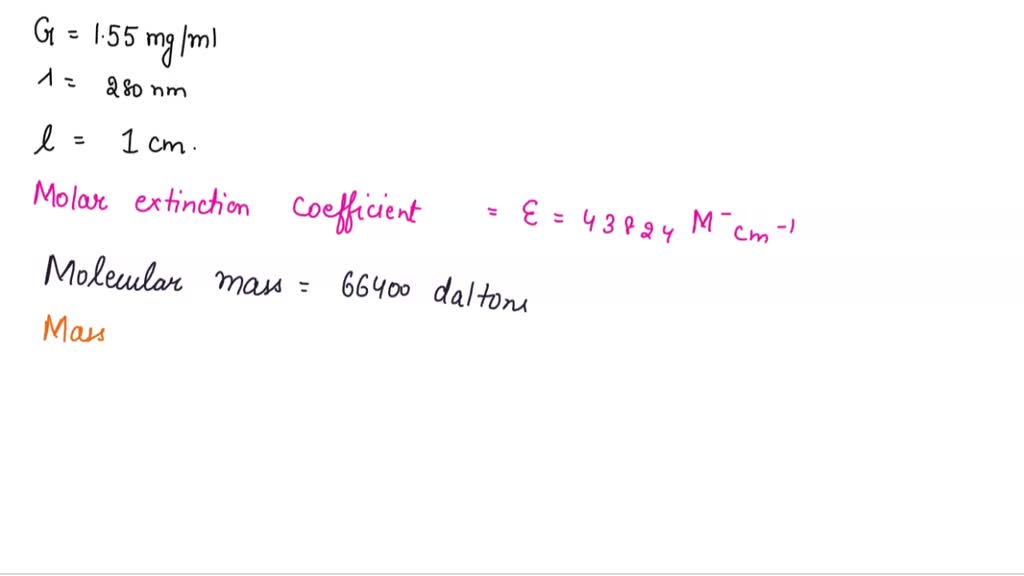 G = 1.55 mg/ml
λ = 280 nm
l = 1 cm.
Molar extinction coefficient = ε = 43824 M⁻cm⁻¹
Molecular mass = 66400 daltons
Mass